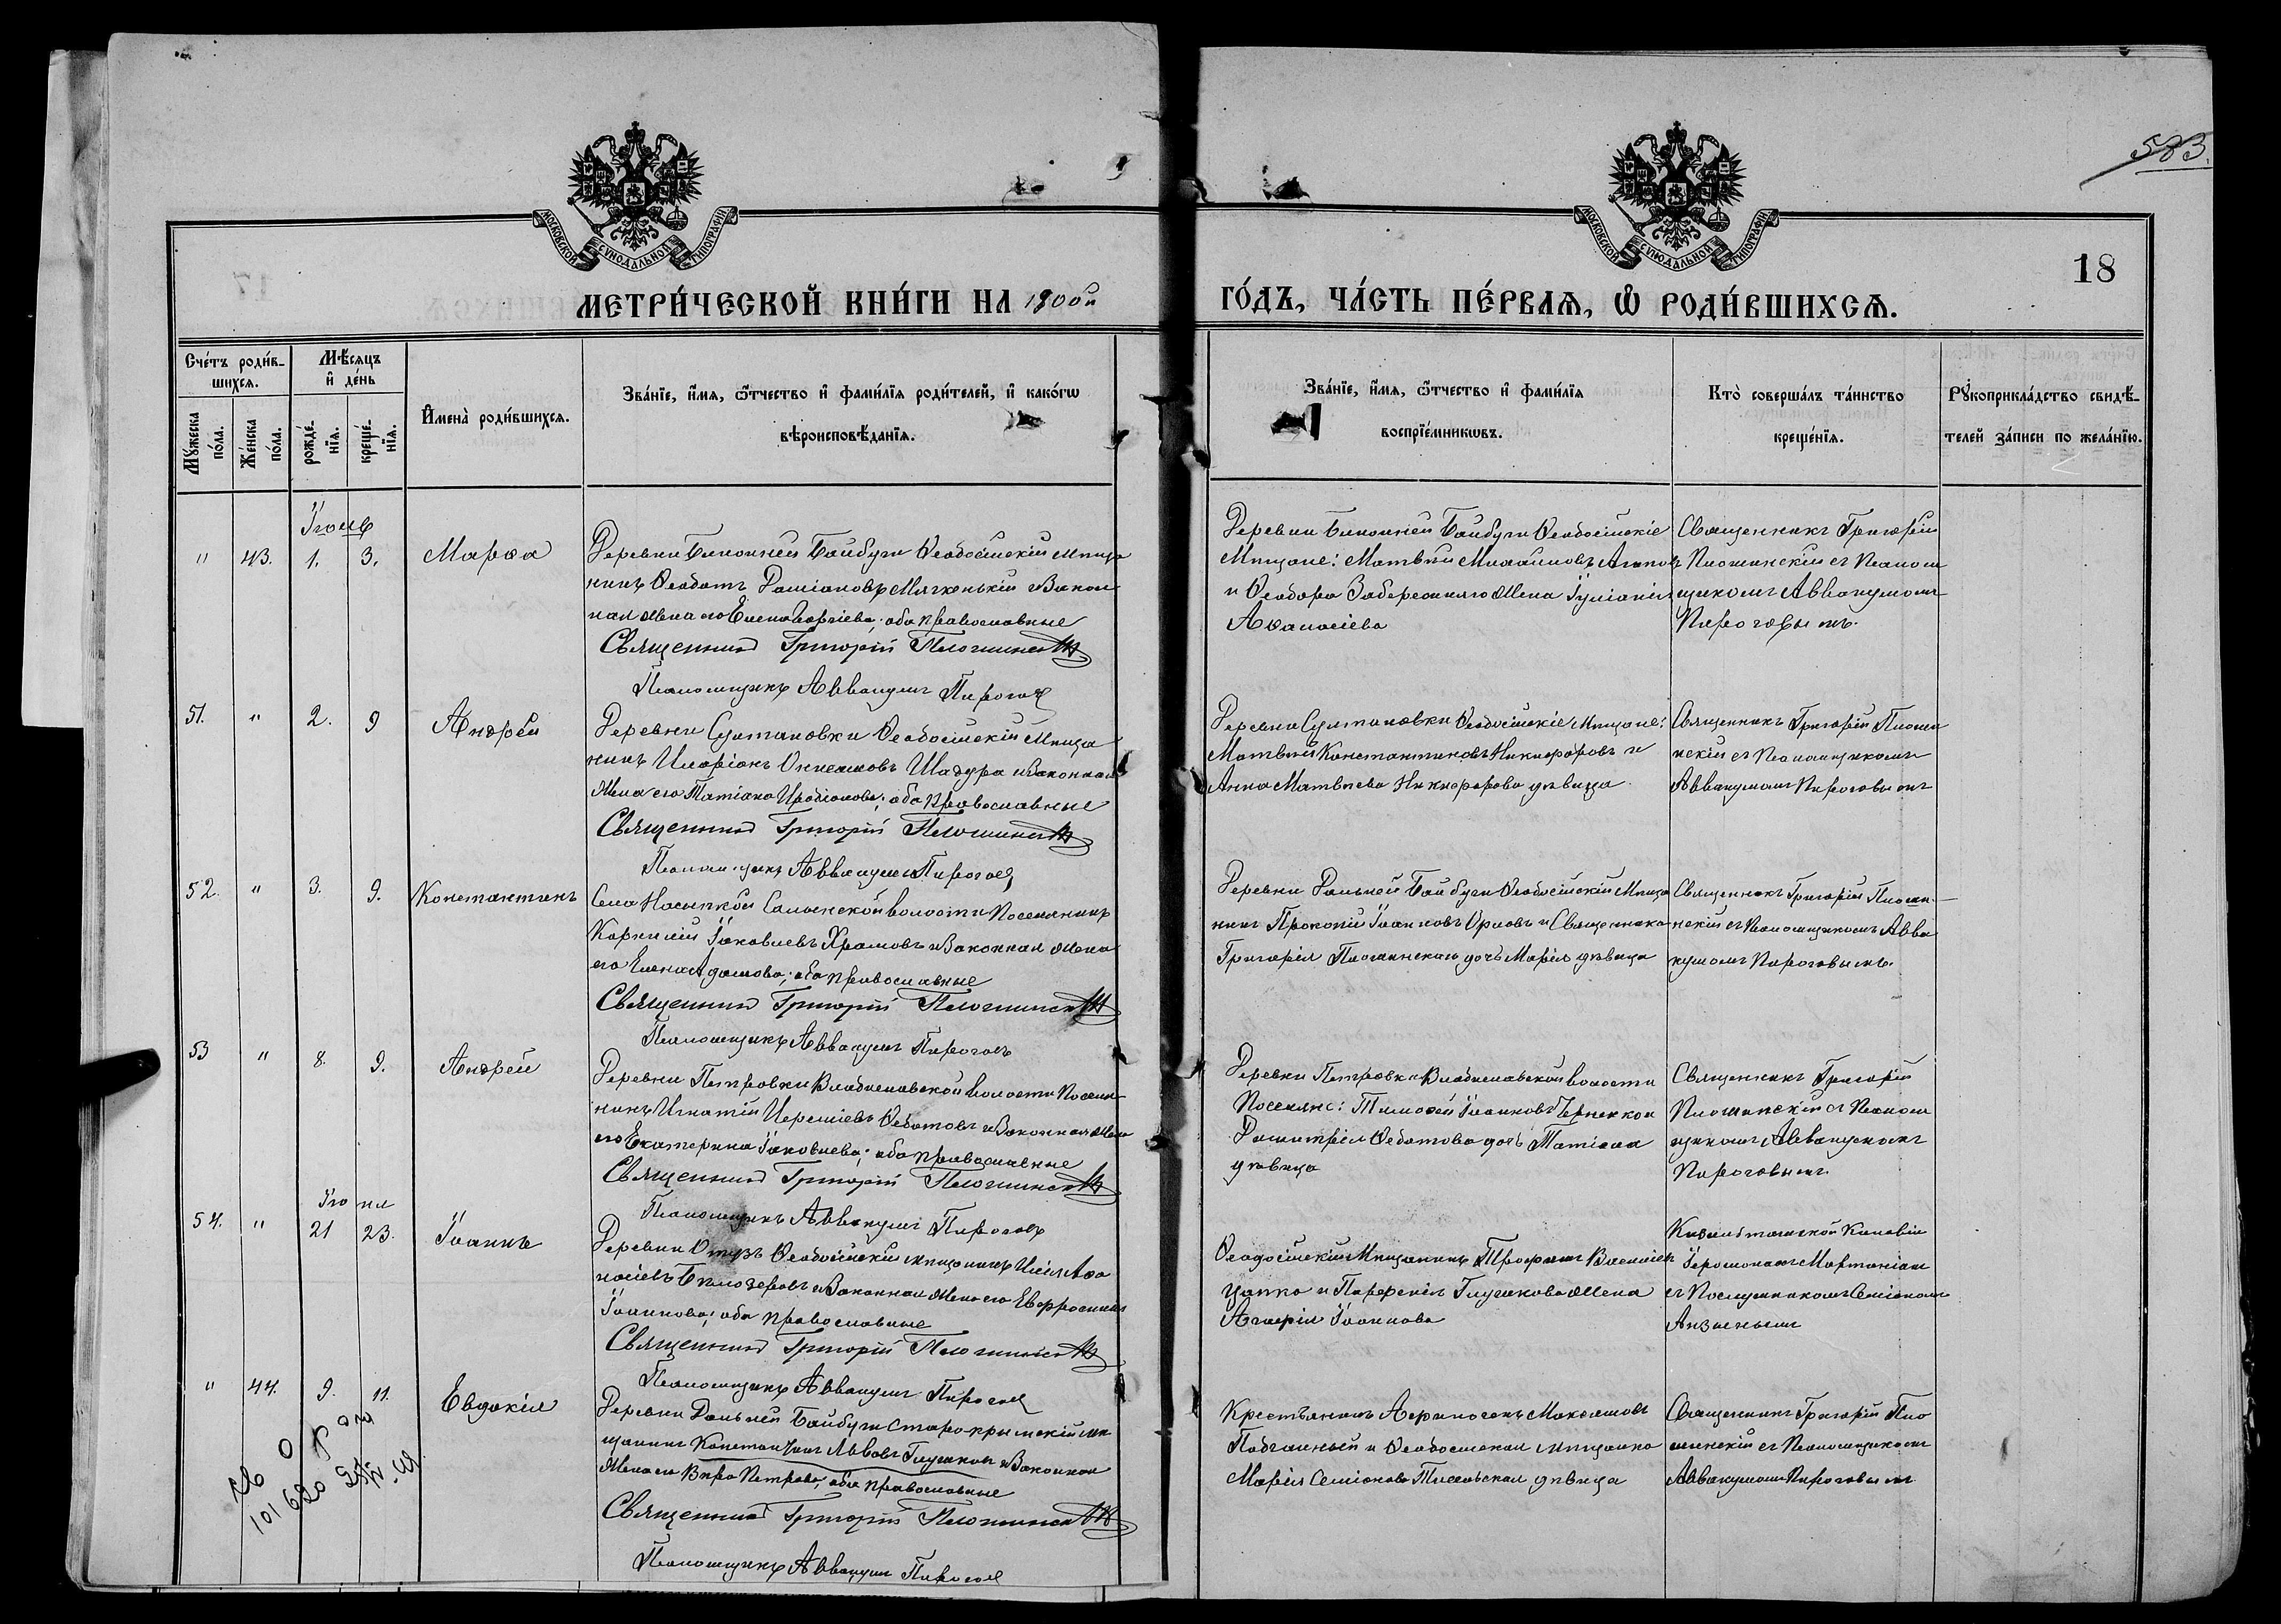 583.
МОСКОВСКОЙ СѴНОДАЛЬНОЙ ТИПОГРАФІИ
МОСКОВСКОЙ СѴНОДАЛЬНОЙ ТИПОГРАФІИ
18
МЕТРИ́ЧЕСКОЙ КНИ́ГИ НА 1900й
ГО́ДЪ, ЧА́СТЬ ПЕ́РВАЯ, Ѿ РОДИ́ВШИХСЯ.
Сче́тъ роди́в-
шихся.
Мꙋ́жеска
по́ла.
Же́нска
по́ла.
Мѣ́сяцъ
и де́нь
рожде́-
нїя.
креще́-
нїя.
Имена̀ роди́вшихся.
Зва́нїе, и́мя, ѻ́тчество и фами́лїя роди́телей, и како́гѡ
вѣроисповѣ́данїя.
Зва́нїе, и́мя, ѻ́тчество и фами́лїя
воспрїе́мникѡвъ.
Кто̀ соверша́лъ та́инство
креще́нїя.
Рꙋкоприкла́дство свидѣ́-
телей за́писи по жела́нїю.
Іюнь
" 43. 1. 3. Марѳа
Деревни Ближней Байбуги Ѳеодосійскій мѣща
нинъ Ѳеодотъ Даміановъ Мягкенькій и закон
ная жена его Елена Георгіева; оба православные
Священникъ Григорій Плошинскій
Псаломщикъ Аввакумъ Пироговъ
Деревни Ближней Байбуги Ѳеодосійскіе
Мѣщане: Матвѣй Михайловъ Агаповъ
и Ѳеодора Забережняго жена Іуліанія
Аѳанасіева
Священникъ Григорій
Плошинскій съ Псалом
щикомъ Аввакумомъ
Пироговымъ.
51. " 2. 9 Андрей
Деревни Султановки Ѳеодосійскій Мѣща
нинъ Иларіонъ Онисимовъ Шадура и законная
жена его Татіана Иродіонова; оба православные
Священникъ Григорій Плошинскій
Псаломщикъ Аввакумъ Пироговъ
Деревни Султановки Ѳеодосійскіе Мѣщане:
Матвѣй Константиновъ Никифоровъ и
Анна Матвѣева Никифорова дѣвица
Священникъ Григорій Плоши
нскій съ Псаломщикомъ
Аввакумомъ Пироговымъ
52. " 3. 9. Константинъ
Села Насыпкой Салынской волости Поселянинъ
Корнилій Іаковлевъ Храмовъ и законная жена
его Елена Адамова; оба православные
Священникъ Григорій Плошинскій
Псаломщикъ Аввакумъ Пироговъ
Деревни Дальней Байбуги Ѳеодосійскій Мѣща
нинъ Прокопій Іоанновъ Орловъ и Священника
Григорія Плошинскаго дочь Марія дѣвица
Священникъ Григорій Плоши-
нскій съ Псаломщикомъ Авва
кумомъ Пироговымъ.
53 " 8. 9. Андрей
Деревни Петровки Владиславской волости Поселя
нинъ Игнатій Іереміевъ Ѳедотовъ и законная жена
его Екатерина Іаковлева; оба православные
Священникъ Григорій Плошинскій
Псаломщикъ Аввакумъ Пироговъ
Деревни Петровки Владиславской волости
Поселяне: Тимоѳей Іоанновъ и
Димитрія Ѳедотова дочь Татіана
дѣвица
Священникъ Григорій
Плошинскій съ Псалом
щикомъ Аввакумомъ
Пироговымъ.
Іюнь
54. " 21 23. Іоаннъ
Деревни Отузъ Ѳеодосійскій мѣщанинъ Илія Аѳа
насіевъ Бѣлозеровъ и законная жена его Евфросинія
Іоаннова; оба православные
Священникъ Григорій Плошинскій
Псаломщикъ Аввакумъ Пироговъ
Ѳеодосійскій Мѣщанинъ Трофимъ Василіевъ
Цапко и Парфенія Глушкова жена
Агафія Іоаннова
Кизилташской Киновіи
Іеромонахъ Мартиніанъ
съ Послушникомъ Симеономъ
" 44. 9. 11. Евдокія
Деревни Дальней Байбуги Старокрымскій мѣ
щанинъ Константинъ Львовъ Глушковъ и законная
жена его Вѣра Петрова; оба православные
Священникъ Григорій Плошинскій
Псаломщикъ Аввакумъ Пироговъ
Крестьянинъ Максимовъ
и Ѳеодосійская мѣщанка
Марія Симеонова дѣвица
Священникъ Григорій Пло
шинскій съ Псаломщикомъ
Аввакумомъ Пироговымъ